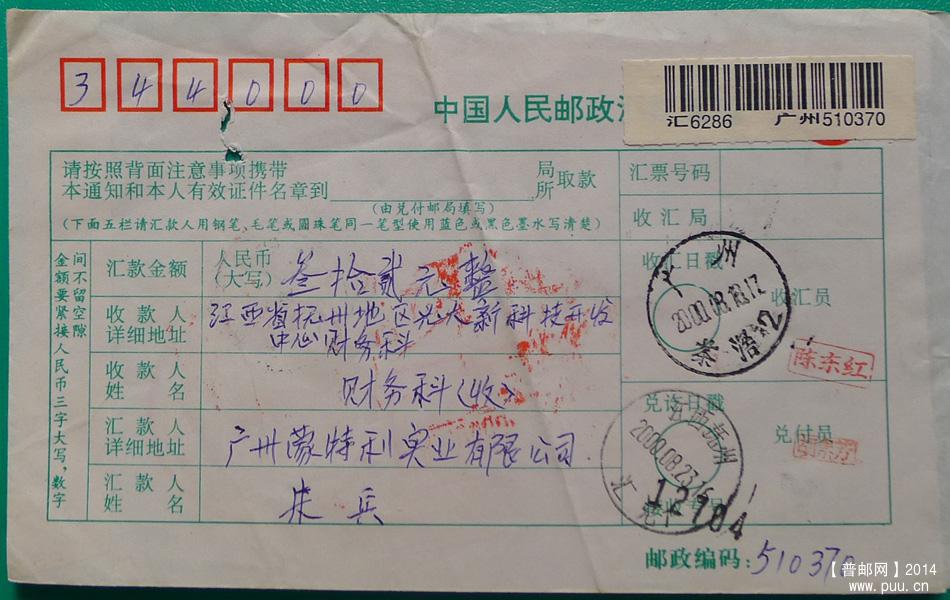 344000
中国人民邮政
汇6286 广州510370
请按照背面注意事项携带
本通知和本人有效证件名章到
局
所
取款
(由兑付邮局填写)
(下面五栏请汇款人用钢笔、毛笔或圆珠笔同一笔型使用蓝色或黑色墨水写清楚)
汇票号码
收汇局
收汇日戳
收汇员
金额要紧接人民币三字大写,数字
间不留空隙
汇款金额
人民币
(大写)
叁拾贰元整
收款人
详细地址
江西省抚州地区光大新科技开发
中心财务科
收款人
姓名
财务科(收)
汇款人
详细地址
广州蒙特利实业有限公司
汇款人
姓名
朱兵
广州
2000.08.18.17
陈东红
兑讫日戳
兑付员
江西抚州
2000.08.23
12704
邮政编码:510370
【普邮网】2014
www.puu.cn